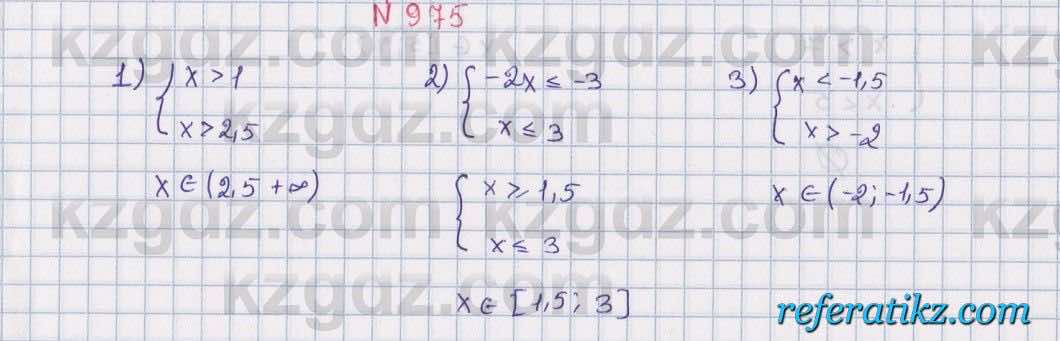 N 975
1) { x > 1
x > 2,5
x ∈ (2,5 +∞)
2) { -2x ≤ -3
x ≤ 3
{ x ≥ 1,5
x ≤ 3
x ∈ [1,5; 3]
3) { x < -1,5
x > -2
x ∈ (-2; -1,5)
kzgdz.com kzgdz.com kzgdz.com
kzgdz.com
kzgdz.com kzgdz.com kzgdz.com
kzgdz.com
referatikz.com